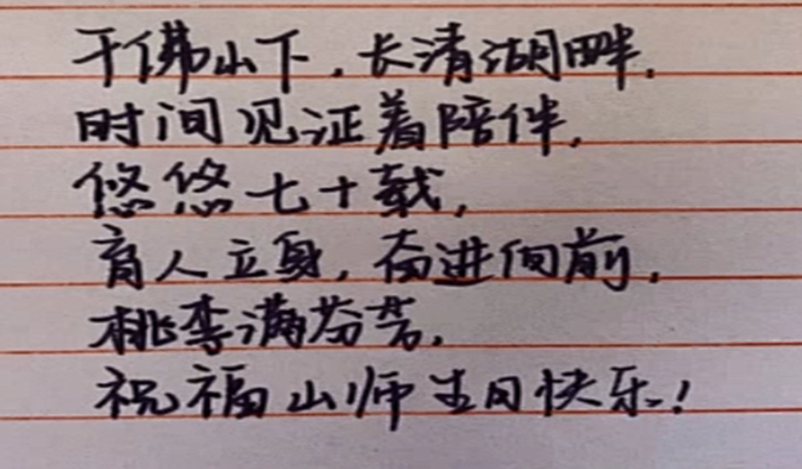 千佛山下，长清湖畔，
时间见证着陪伴，
悠悠七十载，
育人立身，奋进向前，
桃李满芬芳，
祝福山师生日快乐！